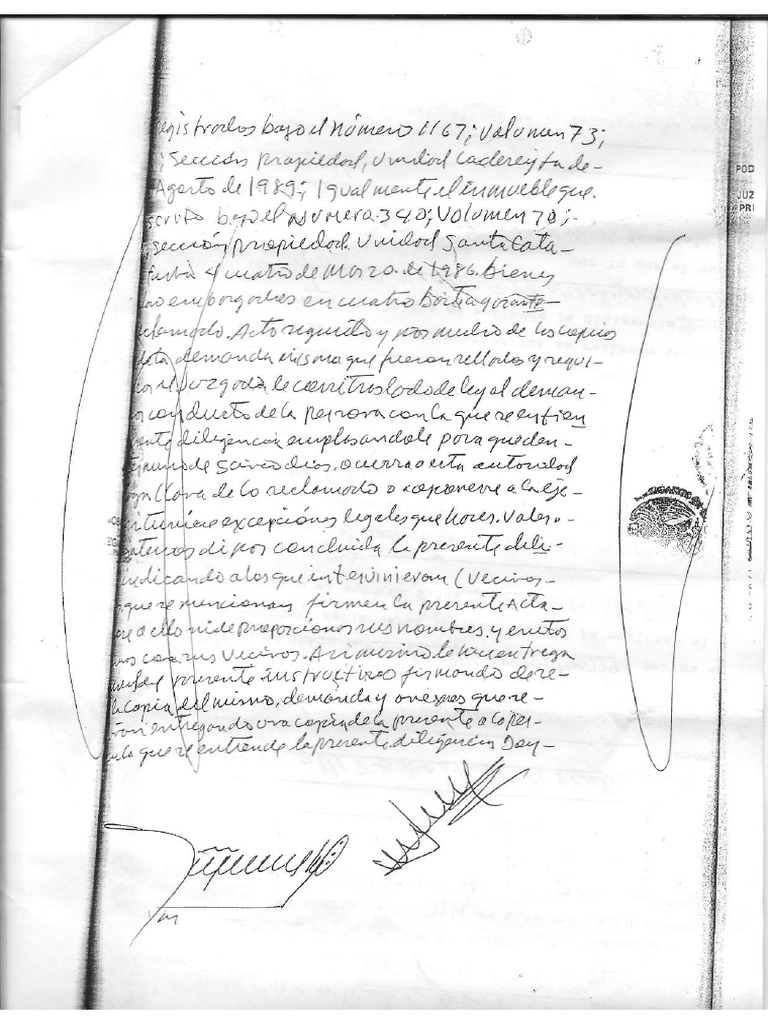 egistrados bajo el número 1167; Volumen 73;
; Sección propiedad, Unidad Cadereyta de-
Agosto de 1989; Igualmente el inmueble que
scrito bajo el número 340; Volumen 70;-
; Sección propiedad. Unidad Santa Cata-
fecha 4 cuatro de Marzo de 1986. bienes
embargados en cuatro garante-
clamado. Acto seguido y por medio de las copias
de la demanda misma que fueron selladas y requi-
el juzgado le corrí traslado de ley al deman-
or conducto de la persona con la que se entien
sente diligencia, emplasandole para que den-
ermino de 5 cinco dias, ocurra a esta autoridad
lo reclamado o a oponerse a la eje-
si tuviere excepciones legales que hacer. Vale.-
terior di por concluida la presente dili-
indicando a los que intervinieron (Vecinos
que se mencionan firmen la presente Acta
proporcionar sus nombres, y evitar
con sus Vecinos. Asi mismo le hice entrega
del presente instructivo firmando de re-
la copia del mismo, demanda y anexos que se
ron entregando una copia de la presente a la per-
la que se entiende la presente diligencia Doy-
POD
JUZ
PRI